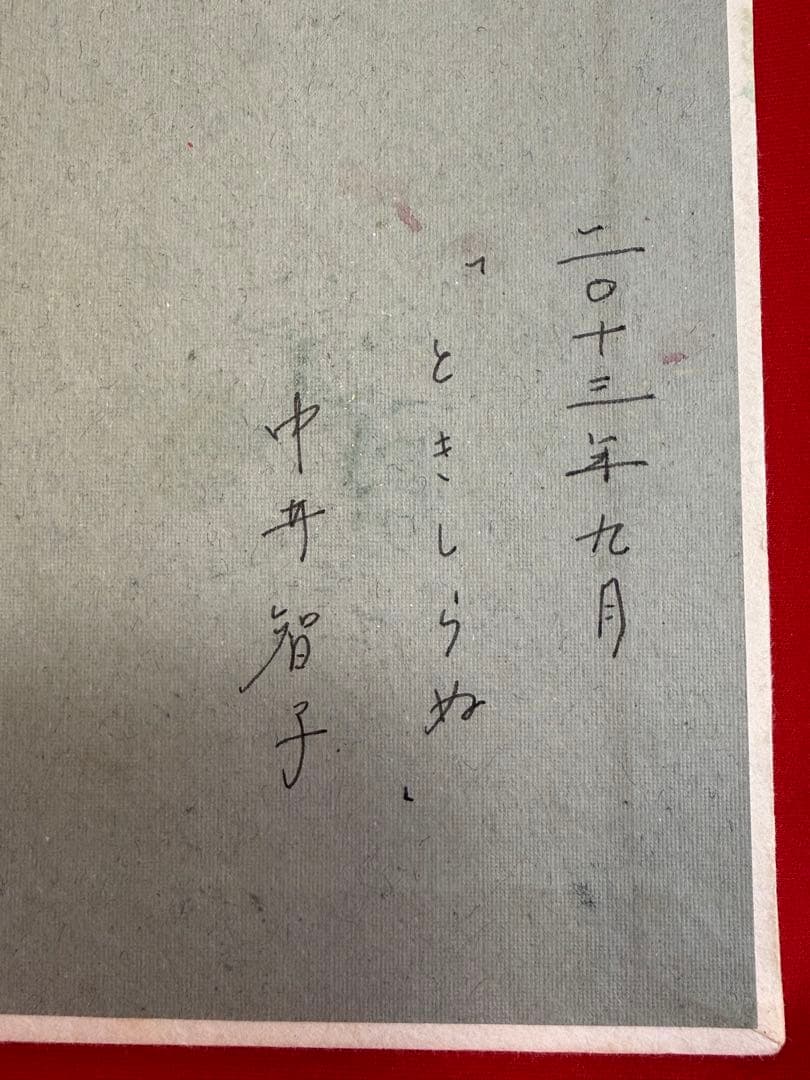 二〇十三年九月
「ときしらぬ」
中井智子